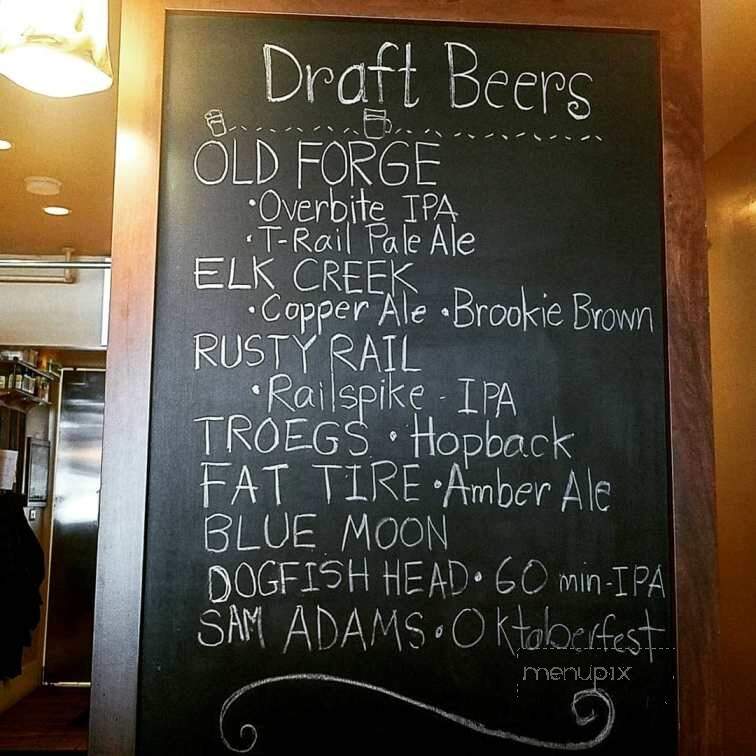 Draft Beers
OLD FORGE
• Overbite IPA
• T-Rail Pale Ale
ELK CREEK
• Copper Ale • Brookie Brown
RUSTY RAIL
• Railspike - IPA
TROEGS • Hopback
FAT TIRE • Amber Ale
BLUE MOON
DOGFISH HEAD • 60 min-IPA
SAM ADAMS • Oktoberfest
menupix